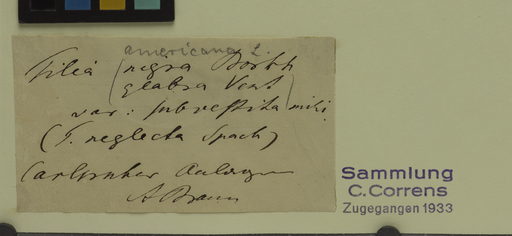 americana L.
Tilia (nigra Borkh
glabra Vent)
var: subvestita mihi.
(T. neglecta Spach)
Carlsruher Anlagen
A Braun
Sammlung
C. Correns
Zugegangen 1933